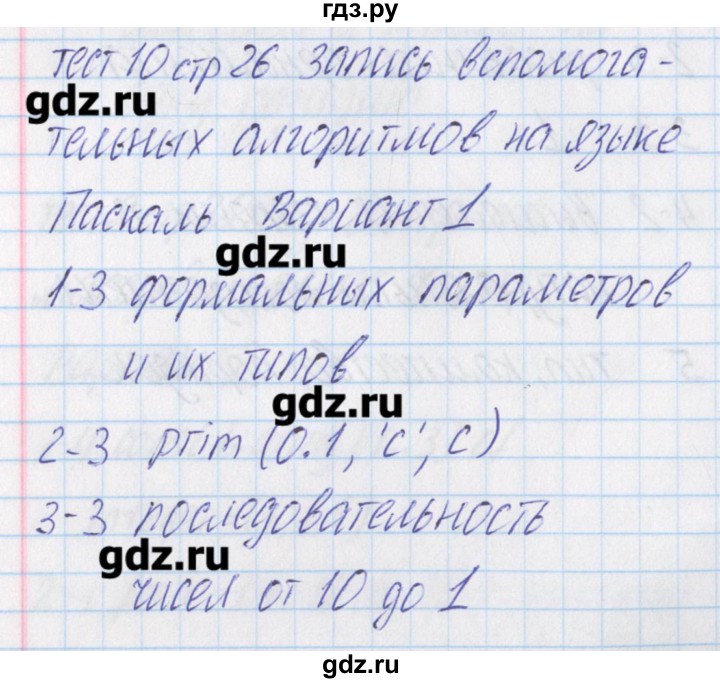 гдз.ру
тест 10 стр 26 запись вспомога-
gdz.ru
тельных алгоритмов на языке
Паскаль Вариант 1
gdz.ru
1-3 формальных параметров
и их типов
gdz.ru
2-3 prim (0.1, 'c', c)
3-3 последовательность
gdz.ru
чисел от 10 до 1
gdz.ru